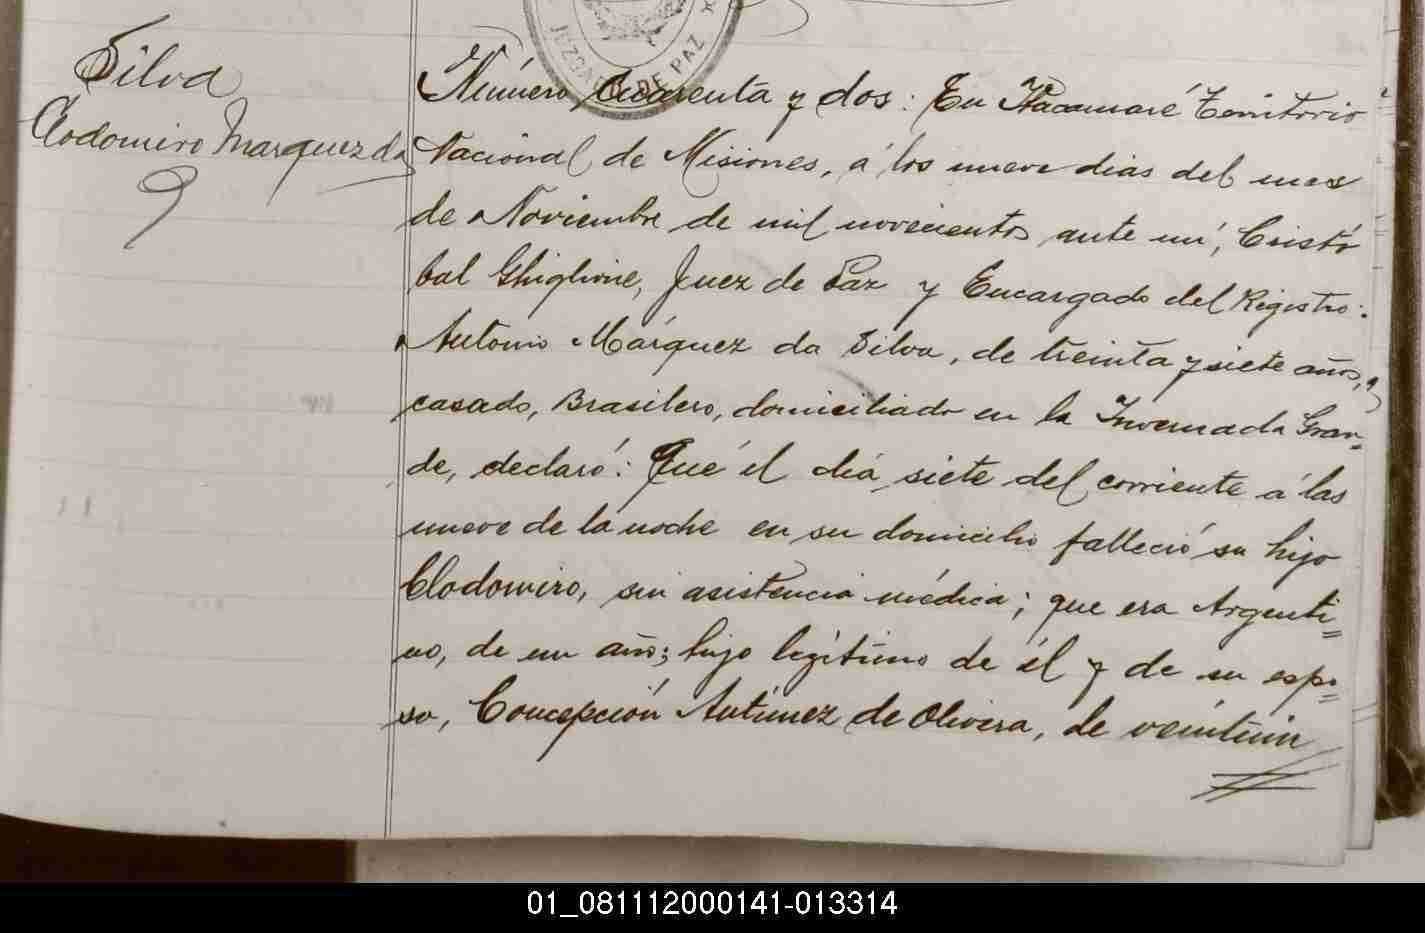 JUZGADO DE PAZ
Silva
Clodomiro Marquez da
Número Cuarenta y dos: En Itacuararé Territorio
Nacional de Misiones, á los nueve dias del mes
de Noviembre de mil novecientos ante mí, Cristó
bal Ghiglione, Juez de Paz y Encargado del Registro:
Antonio Márquez da Silva, de treinta y siete años,
casado, Brasilero, domiciliado en la Invernada Gran=
de, declaró: Que el día siete del corriente á las
nueve de la noche en su domicilio falleció su hijo
Clodomiro, sin asistencia médica; que era Argenti=
no, de un año; hijo legítimo de él y de su espo=
sa, Concepción Antúnez de Olivera, de veintiun
01_081112000141-013314